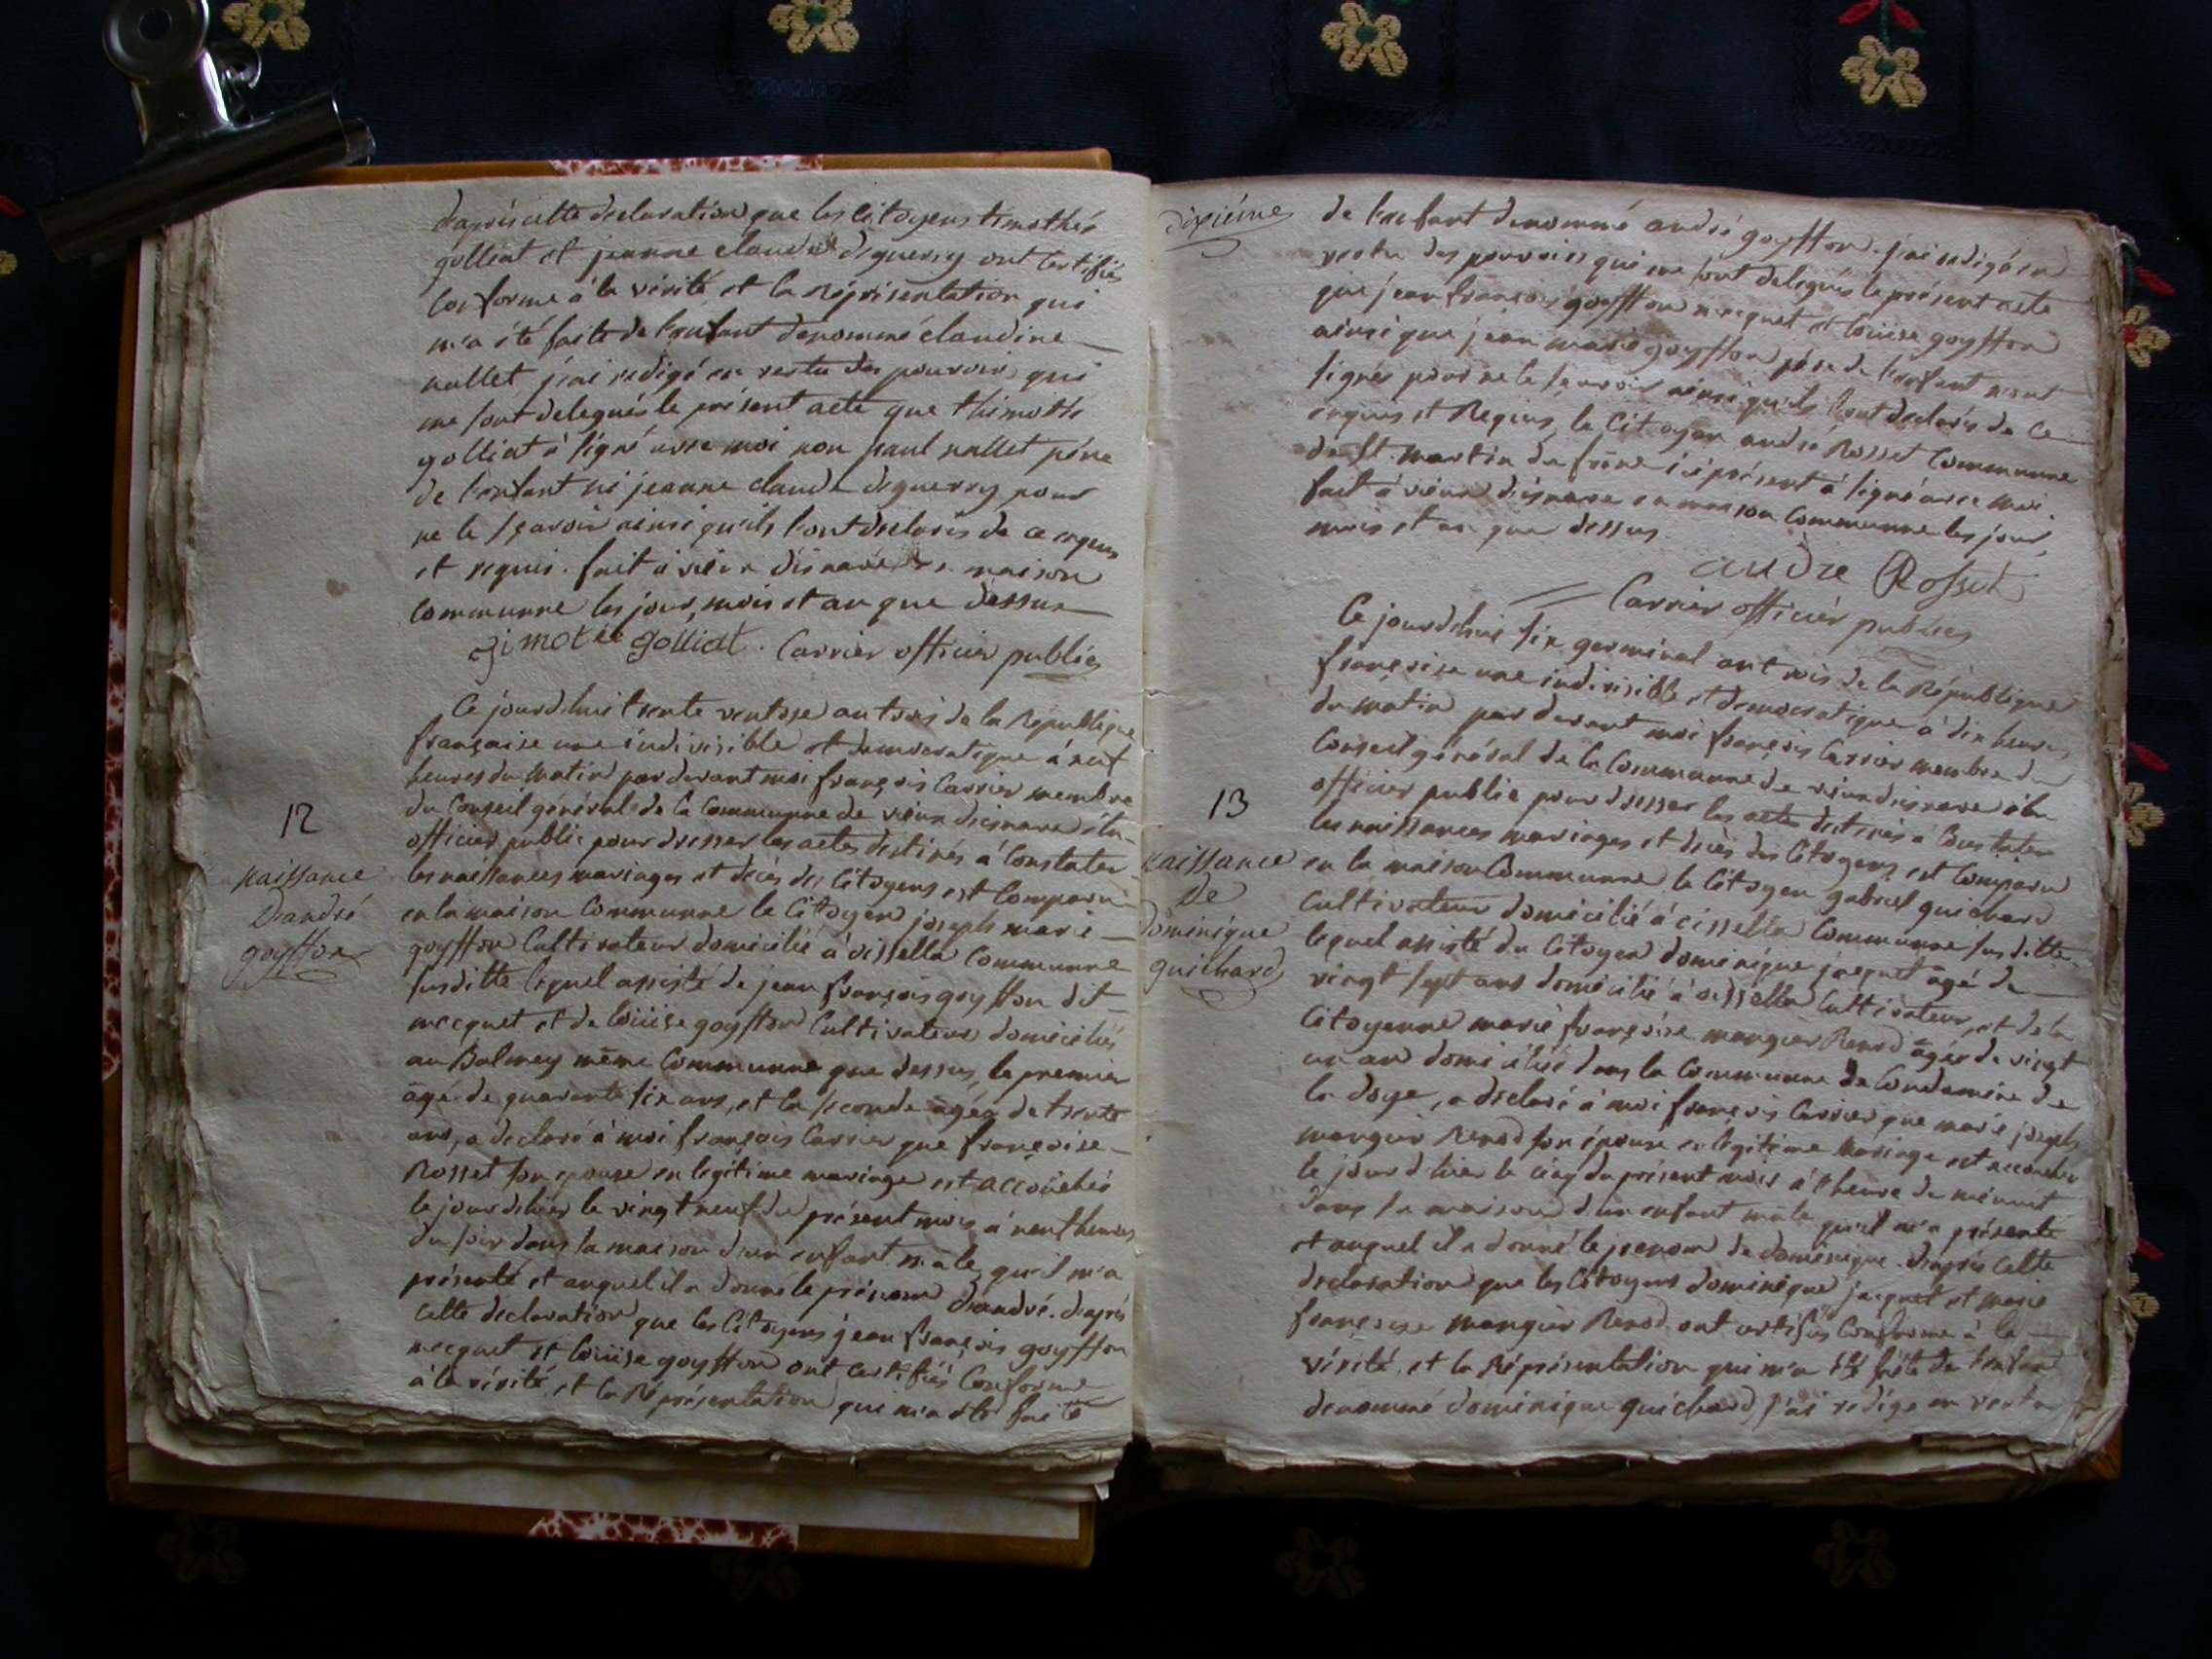 d'après cette declaration que les citoyens timothés
golliat et jeanne claudine deguerry ont certifiés
conforme à la vérité et la Représentation qui
m'a été faite de l'enfant denommé claudine
nallet j'ai redigé en vertu des pouvoirs qui
me sont delegués le présent acte que thimothé
golliat à signé avec moi non paul nallet père
de l'enfant ni jeanne claude deguerry pour
ne le sçavoir ainsi qu'ils l'ont declarés de ce enquis
et requis. fait à vieux disnave maison
communne les jour, mois et an que dessus
timotée golliat. Carrier officier publics
Ce jourdhui trente ventose an trois de la République
française une indivisible et democratique à neuf
heures du matin par devant moi françois Carrier membre
du Conseil général de la Communne de vieux disnave élu
officier public pour dresser les actes destinés à Constater
12
naissance
D'andré
goyffon
les naissances mariages et décès des Citoyens est Comparu
en la maison Communne le Citoyen joseph marie
goyffon Cultivateur domicilié à oissella Communne
susditte lequel assisté de jean françois goyffon dit
mecquet et de loüise goyffon Cultivateurs domiciliés
au Balmey même Communne que dessus, le premier
âgé de quarante six ans, et la seconde âgée de trente
ans, a déclaré à moi françois Carrier que françoise
Rosset son epouse en legitime mariage est accouchés
le jourdhier le vingt neuf du présent mois à neuf heures
du soir dans la maison d'un enfant mâle, qu'il m'a
présenté et auquel il a donné le prénom d'andré. d'après
cette declaration que les Citoyens jean françois goyffon
mecquet et loüise goyffon ont certifiés Conforme
à la vérité et la Représentation qui m'a été faite
dixiéme
de l'enfant denommé andré goyffon. j'ai redigé en
vertu des pouvoirs qui me sont delegués le présent acte
que jean françois goyffon mecquet et loüise goyffon
ainsi que jean marie goyffon père de l'enfant n'ont
signés pour ne le sçavoir ainsi qu'ils l'ont declarés de ce
enquis et Requis, le Citoyen andré Rosset Communne
de St. martin du frêne ici présent à signé avec moi.
fait à vieux disnave en maison Communne les jour,
mois et an que dessus.
andre Rosset
Carrier officier publics
Ce jourdhui six germinal an trois de la République
française une indivisible et democratique à dix heures
du matin par devant moi françois Carrier membre du
Conseil général de la Communne de vieux disnave élu
officier public pour dresser les actes destinés à Constater
13
naissance
De
dominique
guichard
les naissances mariages et décès des Citoyens est Comparu
en la maison Communne le Citoyen gabriel guichard
Cultivateur domicilié à cissella Communne susditte
lequel assisté du Citoyen dominique jacquet âgé de
vingt sept ans domicilié à oissella Cultivateur, et de la
Citoyenne marie françoise mangier Renod âgée de vingt
un an domiciliée dans la Communne de Condamine de
la doye, a déclaré à moi françois Carrier que marie joseph
mangier Renod son épouse en légitime mariage est accouchée
le jour d'hier le cinq du présent mois à l'heure de minuit
dans la maison d'un enfant mâle qu'il m'a présenté
et auquel il a donné le prenom de dominique. d'après cette
declaration que les Citoyens dominique jacquet et marie
françoise mangier Renod ont certifiés Conforme à la
vérité. et la Représentation qui m'a été faite de l'enfant
denommé dominique guichard, j'ai redigé en vertu